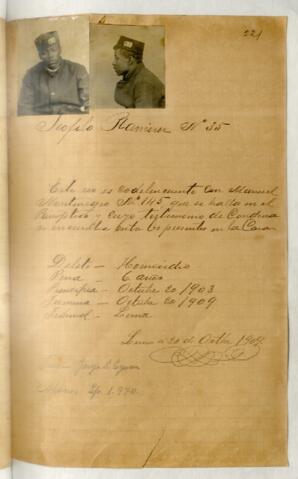 221
Teofilo Ramirez Nº 35
Este reo es codelincuente con Manuel
Montenegro Nº 145 que se halla en el
Panóptico y cuyo testimonio de Condena
se encuentra entre los presentes en la Casa
Delito — Homicidio
Pena — 6 años
Principia — Octubre 20/1903
Termina — Octubre 20/1909
Tribunal — Lima
Lima a 20 de Octbre 1904